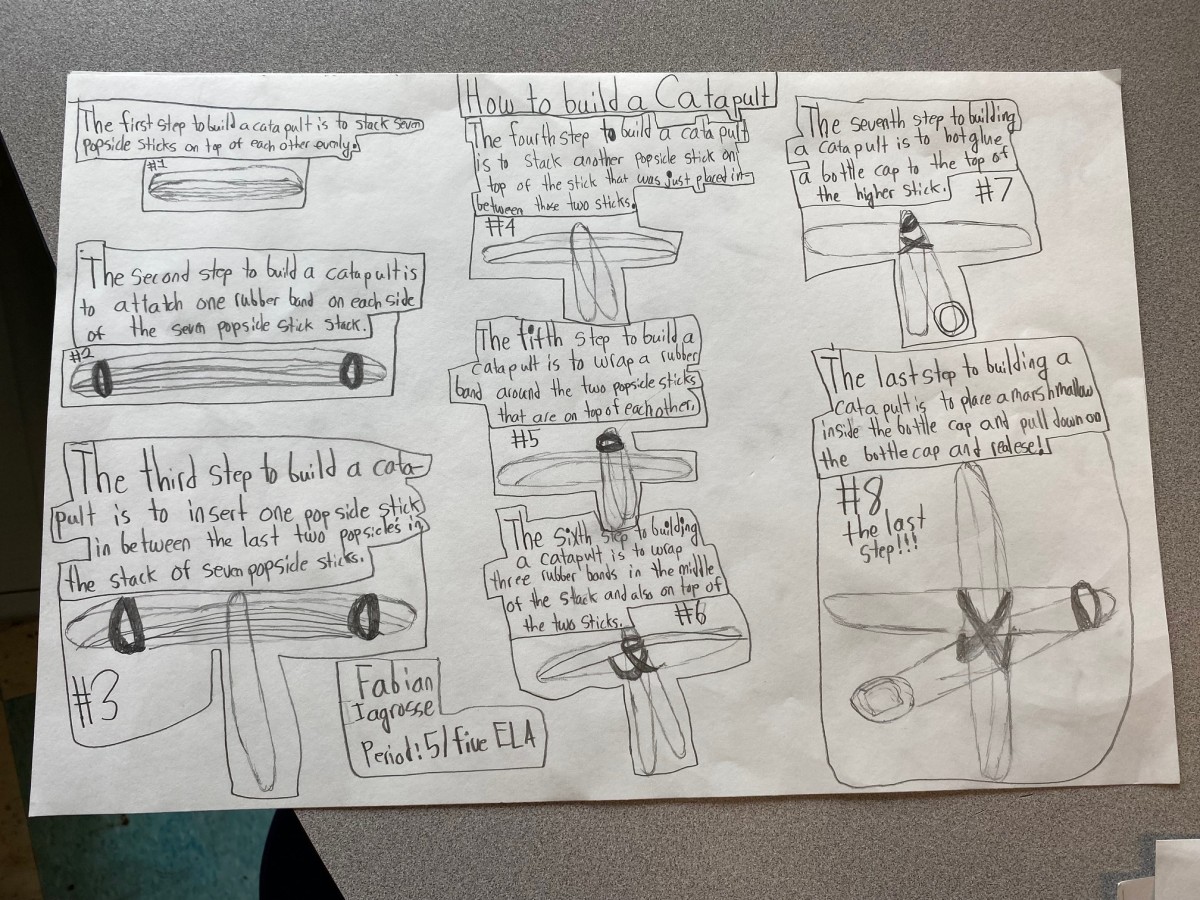 How to build a Catapult
The first step to build a catapult is to stack seven
popsicle sticks on top of each other evenly.
#1
The second step to build a catapult is
to attatch one rubber band on each side
of the seven popsicle stick stack.
#2
The third step to build a cata-
pult is to insert one popsicle stick
in between the last two popsicles in
the stack of seven popsicle sticks.
#3
Fabian
Iagrosse
Period: 5/five ELA
The fourth step to build a catapult
is to stack another popsicle stick on
top of the stick that was just placed in-
between those two sticks.
#4
The fifth step to build a
catapult is to wrap a rubber
band around the two popsicle sticks
that are on top of each other.
#5
The sixth step to building
a catapult is to wrap
three rubber bands in the middle
of the stack and also on top of
the two sticks.
#6
The seventh step to building
a catapult is to hot glue
a bottle cap to the top of
the higher stick.
#7
The last step to building a
catapult is to place a marshmallow
inside the bottle cap and pull down on
the bottle cap and realese!!
#8
the last
step!!!